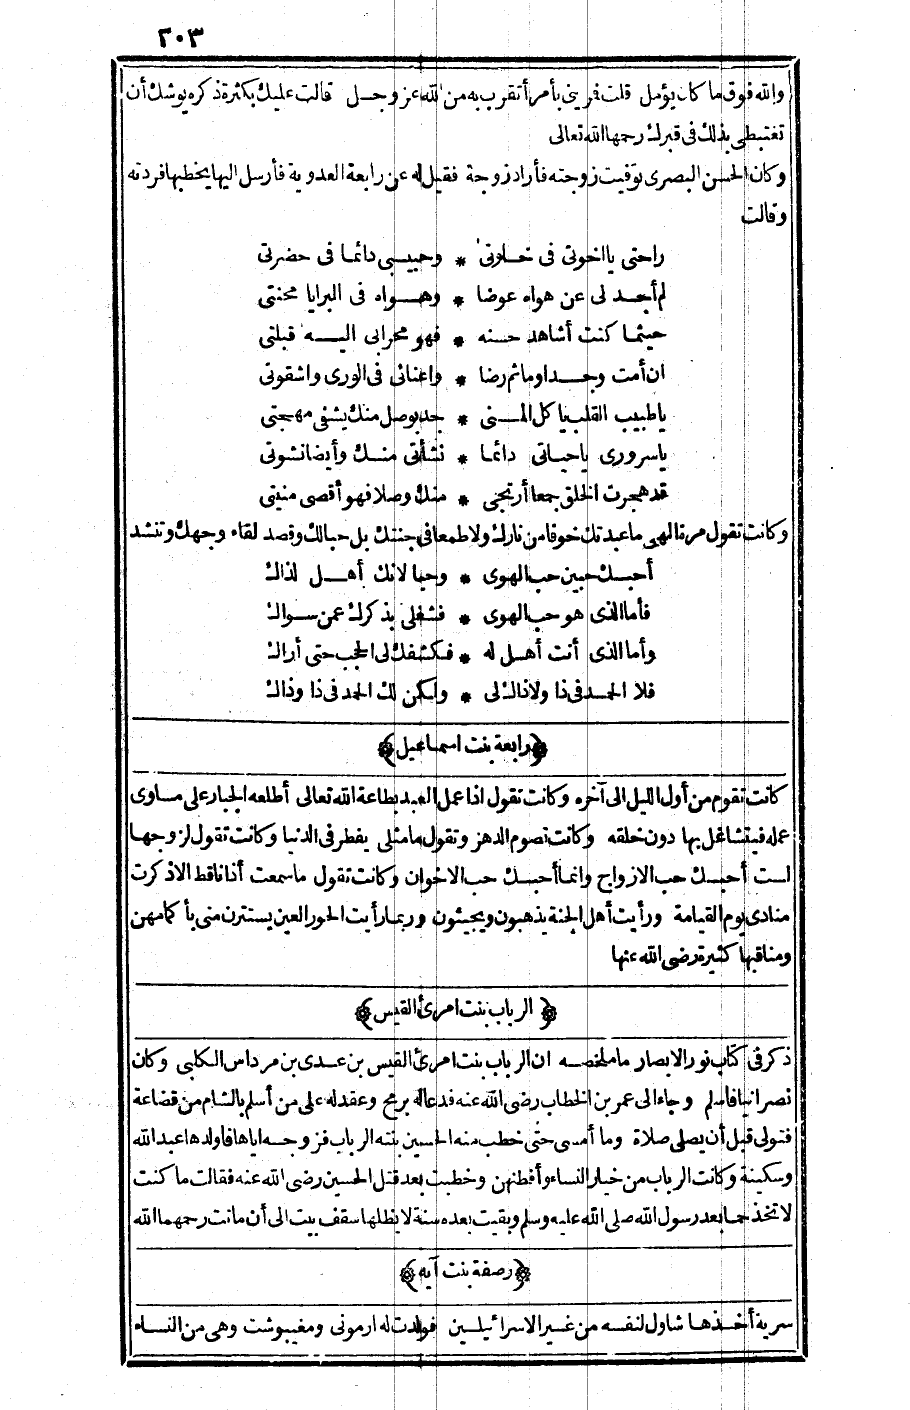 ٢٠٣
والله فوق ما كان يؤمل قلت فمريني بأمر أتقرب به من الله عز وجل قالت عليك بكثرة ذكره يوشك أن
تغتبطي بذلك في قبرك رحمها الله تعالى
وكان الحسن البصرى توفيت زوجته فأراد زوجة فقيل له عن رابعة العدوية فأرسل اليها يخطبها فردته
وقالت
راحتى يا اخوتى فى خلوتى * وحبيبى دائما فى حضرتى
لم أجد لى عن هواه عوضا * وهواه فى البرايا محنتى
حيثما كنت أشاهد حسنه * فهو محرابى اليه قبلتى
ان أمت وجدا وما ثم رضا * واعنائى فى الورى واشقوتى
يا طبيب القلب يا كل المنى * جد بوصل منك يشفى مهجتى
يا سرورى يا حياتى دائما * نشأتى منك وأيضا نشوتى
قد هجرت الخلق جمعا أرتجى * منك وصلا فهو أقصى منيتى
وكانت تقول مرة الهى ما عبدتك خوفا من نارك ولا طمعا فى جنتك بل حبا لك وقصد لقاء وجهك وتنشد
أحبك حبين حب الهوى * وحبا لانك أهل لذاك
فأما الذى هو حب الهوى * فشغلى بذكرك عمن سواك
وأما الذى أنت أهل له * فكشفك لى الحجب حتى أراك
فلا الحمد فى ذا ولا ذاك لى * ولكن لك الحمد فى ذا وذاك
﴿رابعة بنت اسماعيل﴾
كانت تقوم من أول الليل الى آخره وكانت تقول اذا عمل العبد بطاعة الله تعالى أطلعه الجبار على مساوى
عمله فيتشاغل بها دون خلقه وكانت تصوم الدهر وتقول ما مثلى يفطر فى الدنيا وكانت تقول لزوجها
لست أحبك حب الازواج وانما أحبك حب الاخوان وكانت تقول ما سمعت أذانا قط الا ذكرت
منادى يوم القيامة ورأيت أهل الجنة يذهبون ويجيئون وربما رأيت الحور العين يستترن منى بأكمامهن
ومناقبها كثيرة رضى الله عنها
﴿الرباب بنت امرئ القيس﴾
ذكر فى كتاب نور الابصار ما ملخصه ان الرباب بنت امرئ القيس بن عدى بن مرداس الكلبى وكان
نصرانيا فأسلم وجاء الى عمر بن الخطاب رضى الله عنه فدعا له برمح وعقد له على من أسلم بالشام من قضاعة
فتولى قبل أن يصلى صلاة وما أمسى حتى خطب منه الحسين بنته الرباب فزوجه اياها فأولدها عبد الله
وسكينة وكانت الرباب من خيار النساء وأفطنهن وخطبت بعد قتل الحسين رضى الله عنه فقالت ما كنت
لا تخذ حما بعد رسول الله صلى الله عليه وسلم وبقيت بعده سنة لا يظلها سقف بيت الى أن ماتت رحمهما الله
﴿رصفة بنت آية﴾
سرية أخذها شاول لنفسه من غير الاسرائيليين فولدت له ارمونى ومفيبوشت وهى من النساء